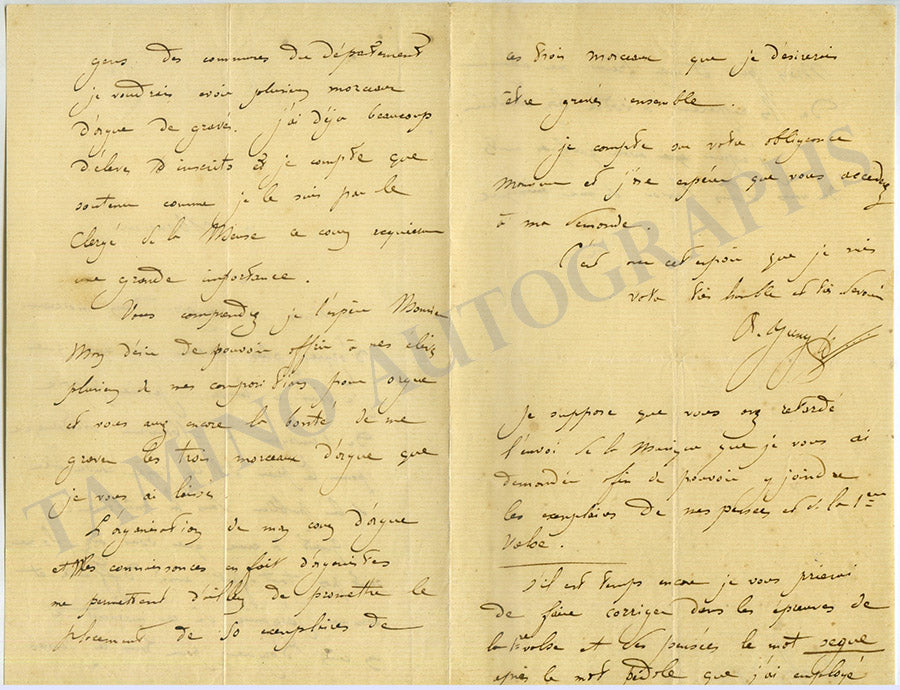 gens des communes du département
je voudrais avoir plusieurs morceaux
d'orgue de gravés. j'ai déjà beaucoup
d'élèves inscrits et je compte que
soutenu comme je le suis par le
Clergé de la Meuse ce cours requierera
une grande importance.
Vous comprendrez je l'espère Monsieur
Mon désir de pouvoir offrir à mes élèves
plusieurs de mes compositions pour orgue
et vous aurez encore la bonté de me
graver les trois morceaux d'orgue que
je vous ai laissés
L'organisation de mon cours d'orgue
et mes connaissances en fait d'organistes
me permettent d'ailleurs de promettre le
placement de 50 exemplaires de
ces trois morceaux que je désirerais
être gravés ensemble.
je compte sur votre obligeance
Monsieur et j'ose espérer que vous accéderez
à ma demande.
C'est avec cet espoir que je suis
votre très humble et très dévoué
Je suppose que vous avez retardé
l'envoi de la Musique que je vous ai
demandée afin de pouvoir y joindre
les exemplaires de mes pensées et de la 1ère
Valse.
S'il est temps encore je vous prierai
de faire corriger dans les épreuves de
la 1re valse et des pensées le mot segue
après le mot pédale que j'ai employé
TAMINO AUTOGRAPHS